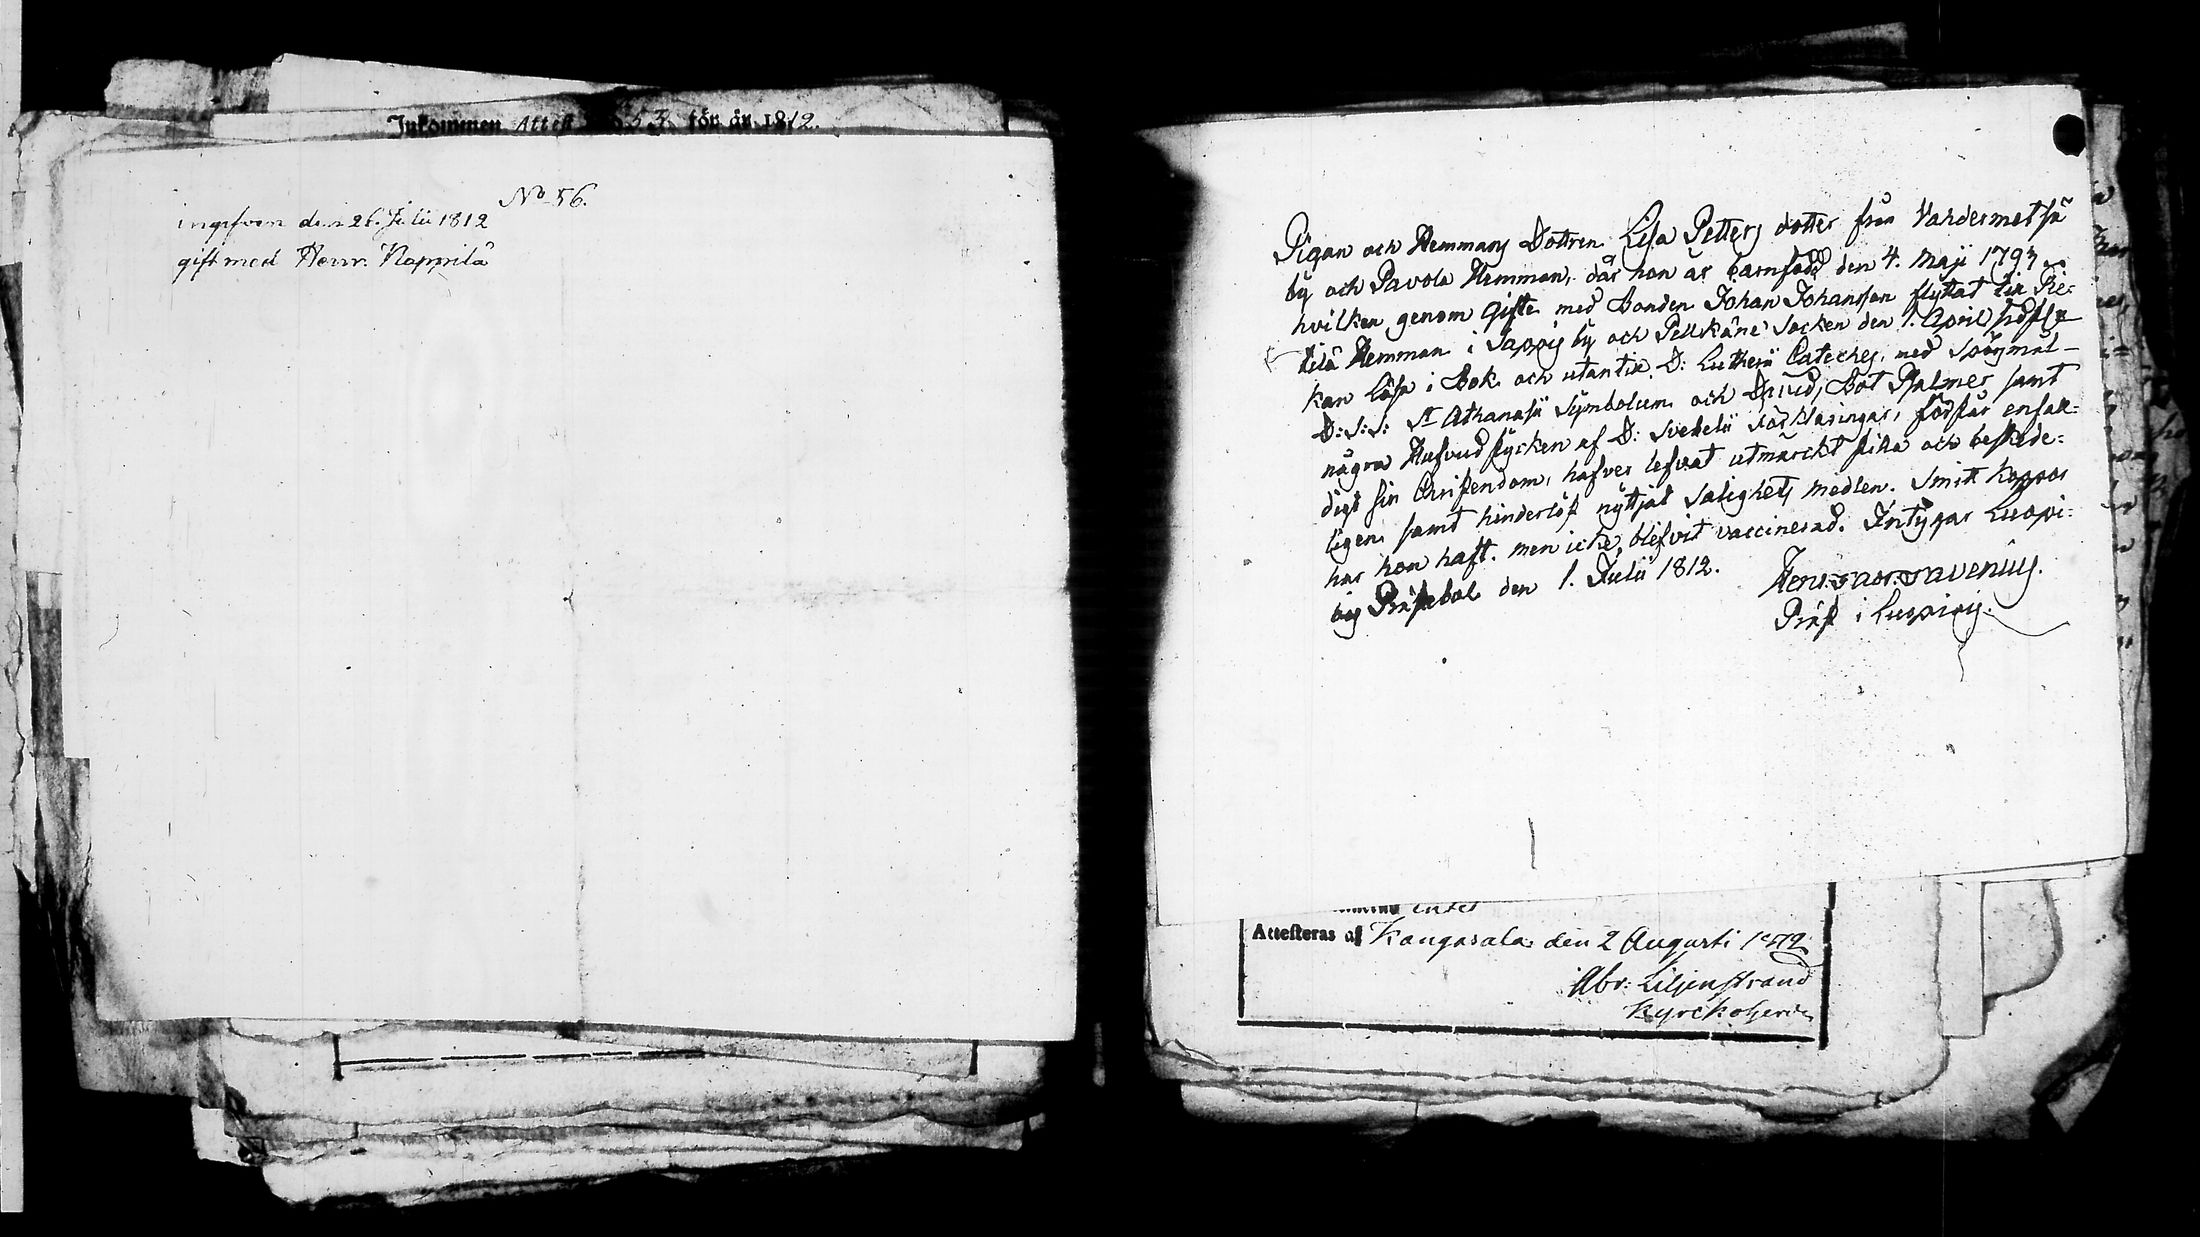 Inkommen Attest 53 för år 1812.
No 56.
ingifven den 26. Julii 1812
gift med Henr. Nappilä
Pigan och Hemmans Dottren Lisa Petters dotter från Vahdermetsä
by och Pavola Hemman, där hon är barnfödd den 4. Maji 1793
hvilken genom gifte med Bonden Johan Johansson flyttat til Rie-
tilä Hemman i Sappis by och Pelkäne Socken den 1. April sidstl.
Kan läsa i Bok och utantil D: Lutherii Cateches. med Spörsmål
D:S:S: St Athanasii Symbolum och Bot Psalmer samt
några Hufvudstycken af D: Svebelii Förklaringar, förstår enfal-
digt sin Christendom, hafver lefvat utmärckt stilla och beskede-
ligen samt hinderlöst nyttjat Salighets medlen. Smitt Koppor
har hon haft. men icke blifvit vaccinerad. Intygar Luopi-
ois Prästebol den 1. Julii 1812.
Henr: Savenius.
Präst i Luopiois.
Attesteras af Kangasala den 2 Augusti 1812
Abr: Liljenstrand
Kyrckoherde